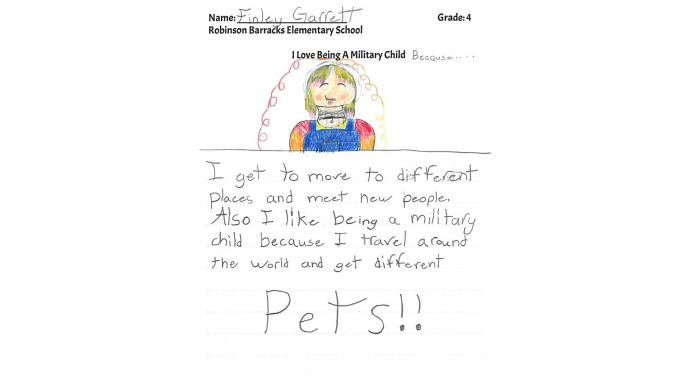 Name: Finley Garrett Grade: 4
Robinson Barracks Elementary School
I Love Being A Military Child Because....
I get to move to different
places and meet new people.
Also I like being a military
child because I travel around
the world and get different
Pets!!